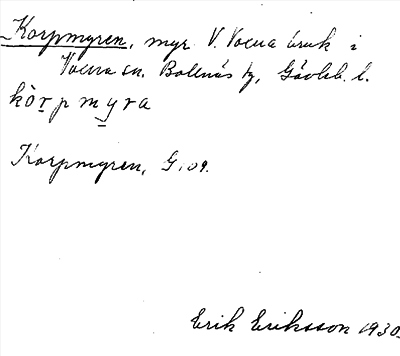 Korpmyren, myr V. Voxna bruk i
Voxna sn. Bollnäs tg, Gävleb. l.
kòrpmyra
Korpmyren, G. 109.
Erik Eriksson 1930.